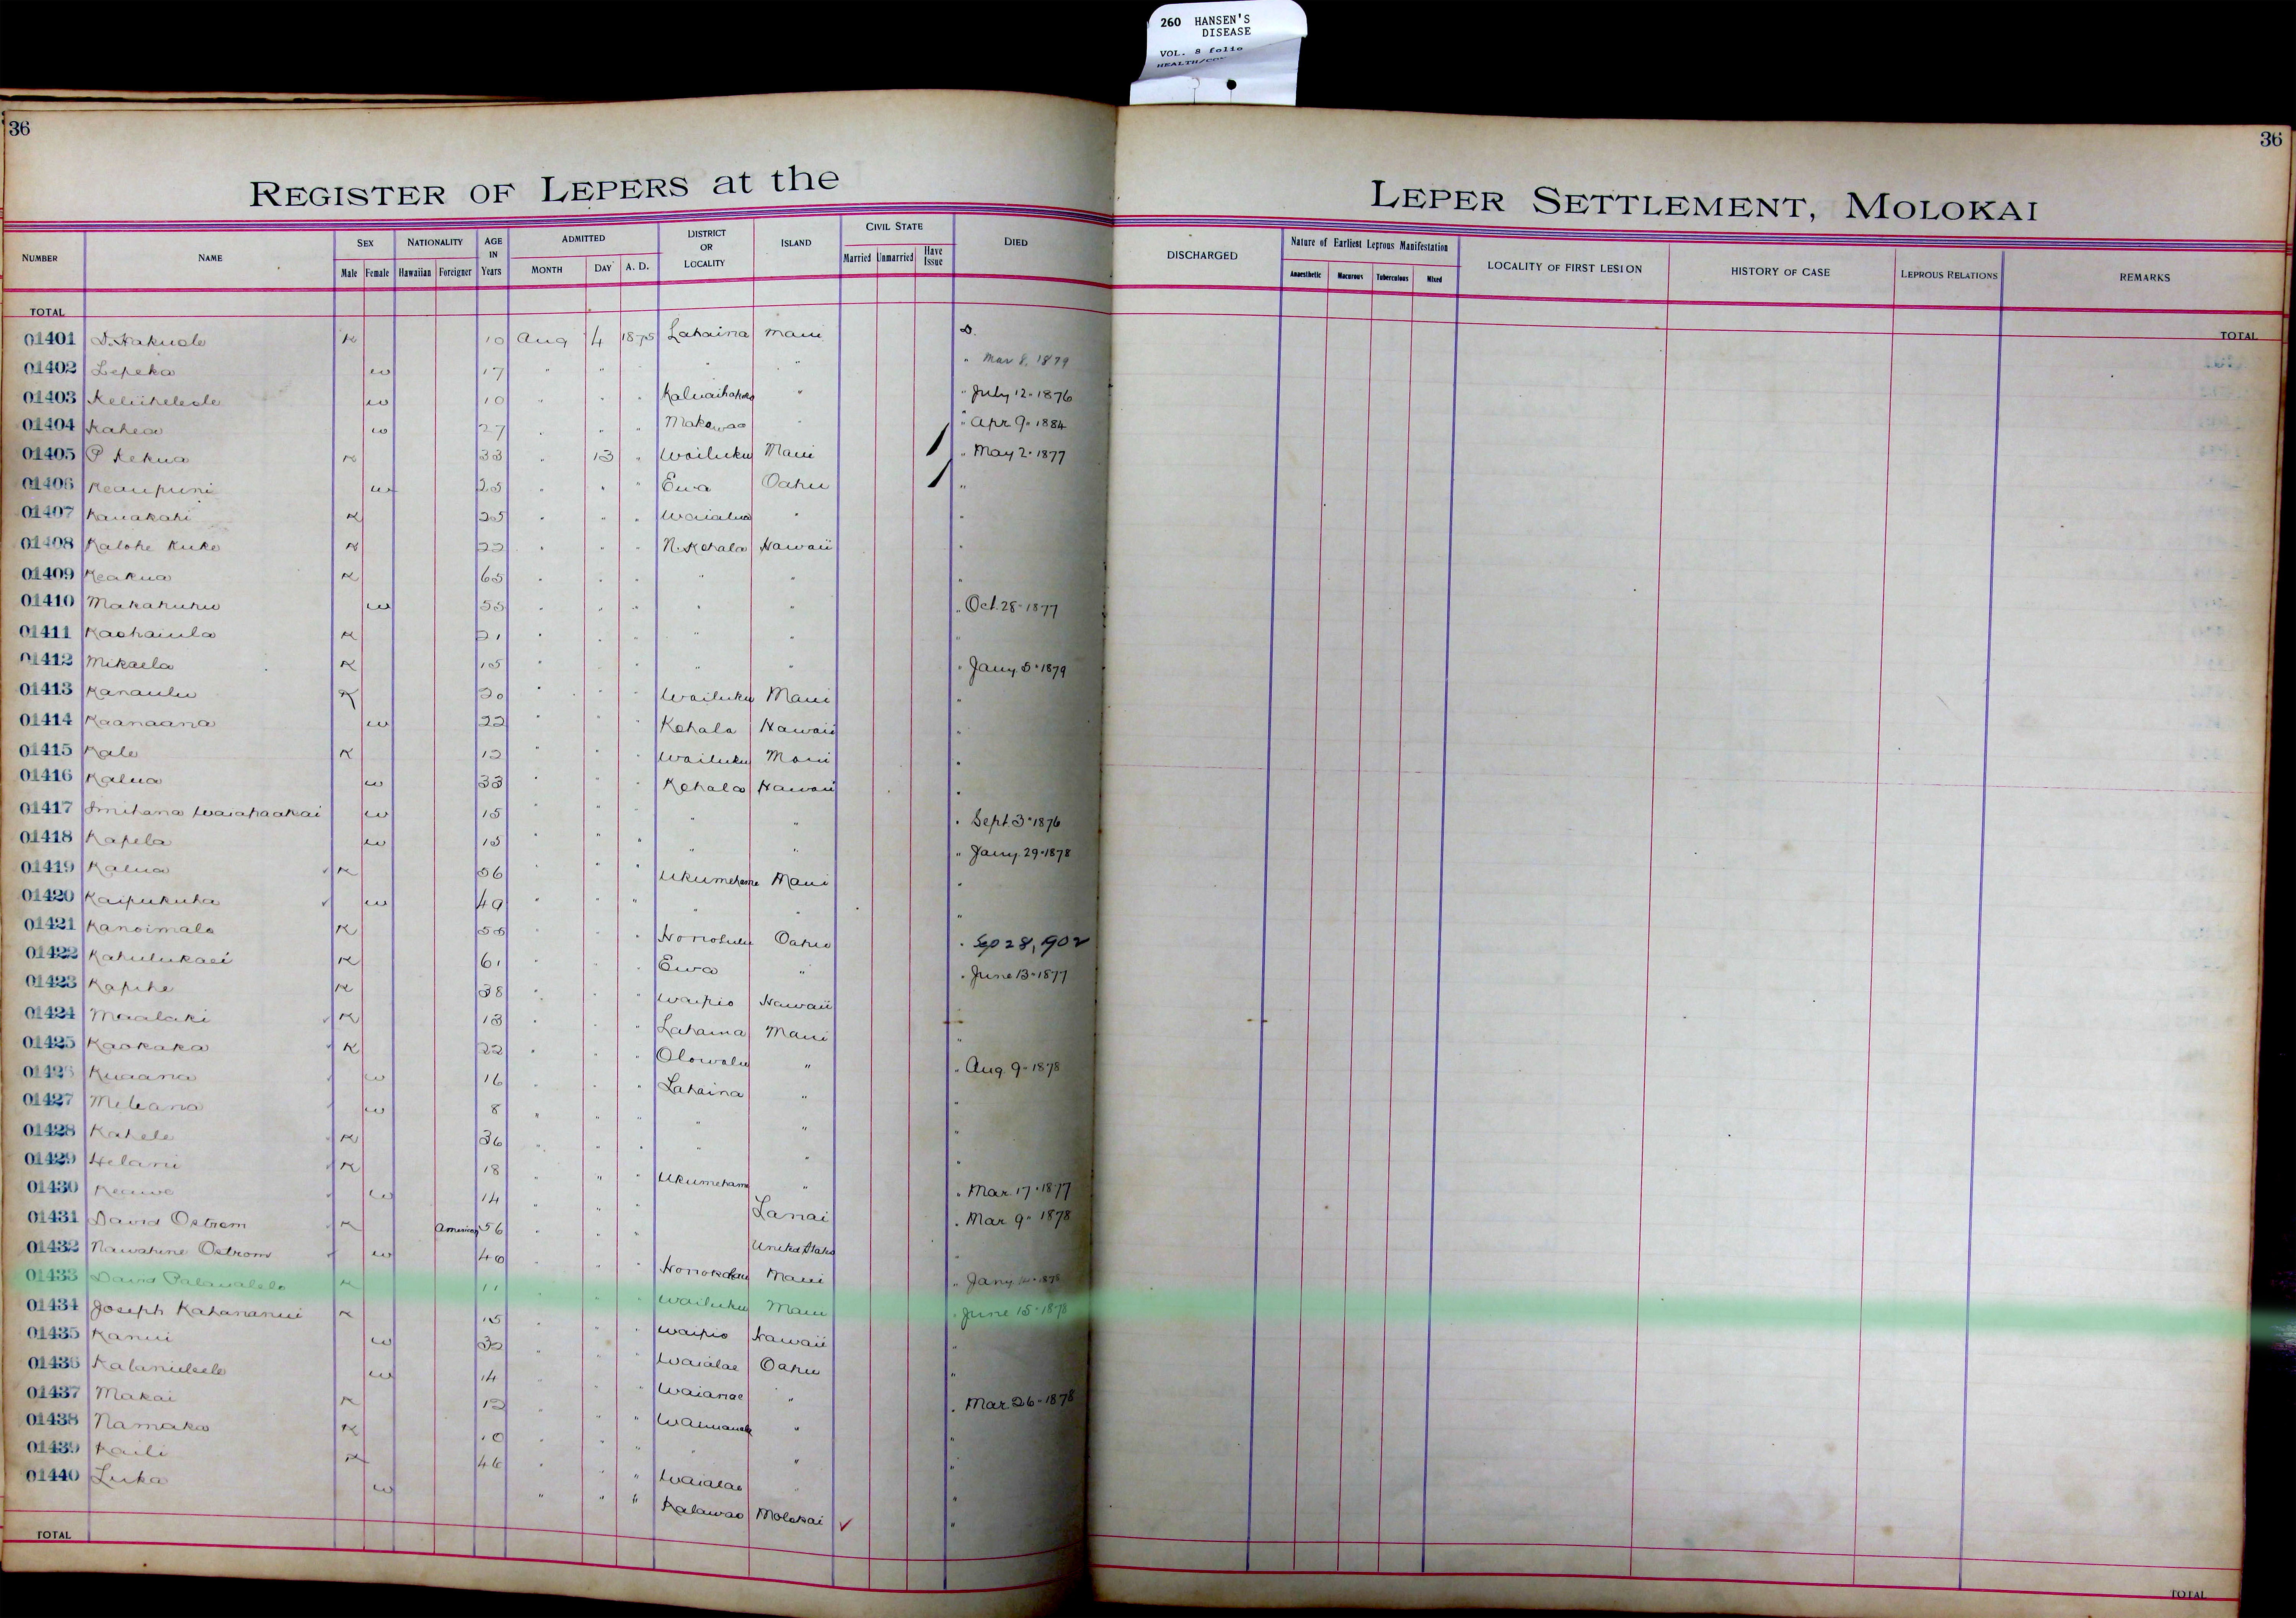 260 HANSEN'S
DISEASE
VOL. 8 folio
36
36
REGISTER OF LEPERS at the
LEPER SETTLEMENT, MOLOKAI
NUMBER NAME SEX Male Female NATIONALITY Hawaiian Foreigner AGE IN Years ADMITTED MONTH DAY A. D. DISTRICT OR LOCALITY ISLAND CIVIL STATE Married Unmarried Have Issue DIED
DISCHARGED Nature of Earliest Leprous Manifestation Anaesthetic Macurous Tuberculous Mixed LOCALITY OF FIRST LESION HISTORY OF CASE LEPROUS RELATIONS REMARKS
TOTAL TOTAL
01401 D. Hakuole K 10 Aug 4 1875 Lahaina Maui D.
01402 Lepeka w 17 " " " " " Mar 8. 1879
01403 Keliiheleole w 10 " " " " " July 12-1876
01404 Kahea w 27 " " " Makawao " " Apr 9-1884
01405 P Kekua K 33 " 13 " Wailuku Maui / " May 2-1877
01406 Keaupuni w 25 " " " Ewa Oahu / "
01407 Kauakahi K 25 " " " Waialua " "
01408 Kalohe Kuke K 22 " " " N. Kohala Hawaii "
01409 Keakua K 65 " " " " " "
01410 Makahuhu w 55 " " " " " " Oct. 28-1877
01411 Kaohaiula K 21 " " " " " "
01412 Mikaela K 15 " " " " " " Jany 5-1879
01413 Kanaulu K 20 " " " Wailuku Maui "
01414 Kaanaana w 22 " " " Kohala Hawaii "
01415 Kale K 12 " " " Wailuku Maui "
01416 Kalua w 33 " " " Kohala Hawaii "
01417 w 15 " " " " " " Sept. 3-1876
01418 Kapela w 15 " " " " " " Jany. 29-1878
01419 Kalua K 56 " " " Ukumehame Maui "
01420 Kaipukuha w 49 " " " " " "
01421 Kanoimalo K 55 " " " Honolulu Oahu " Sep 28, 1902
01422 Kahulukaei K 61 " " " Ewa " " June 13-1877
01423 Kapihe K 38 " " " Waipio Hawaii
01424 Maalaki K 13 " " " Lahaina Maui "
01425 Kaokaka K 22 " " " Olowalu " " Aug. 9-1878
01426 Kuaana w 16 " " " Lahaina " "
01427 Meleana w 8 " " " " " "
01428 Kahele K 36 " " " " " "
01429 Helani K 18 " " " Ukumehame " " Mar. 17-1877
01430 Keawe w 14 " " " Lanai " Mar. 9-1878
01431 David Ostrom K American 56 " " " United States "
01432 Nawahine Ostrom w 40 " " " Honokohau Maui " Jany 1878
01433 David K 11 " " " Wailuku Maui " June 15-1878
01434 Joseph Kahananui K 15 " " " Waipio Hawaii "
01435 Kanui w 32 " " " Waialae Oahu "
01436 Kalanileele w 14 " " " Waianae " " Mar. 26-1878
01437 Makai K 12 " " " Waimanalo " "
01438 Namaka K 10 " " " " " "
01439 Kaili K 46 " " " Waialae " "
01440 Luka w " " " Kalawao Molokai ✓ "
TOTAL TOTAL